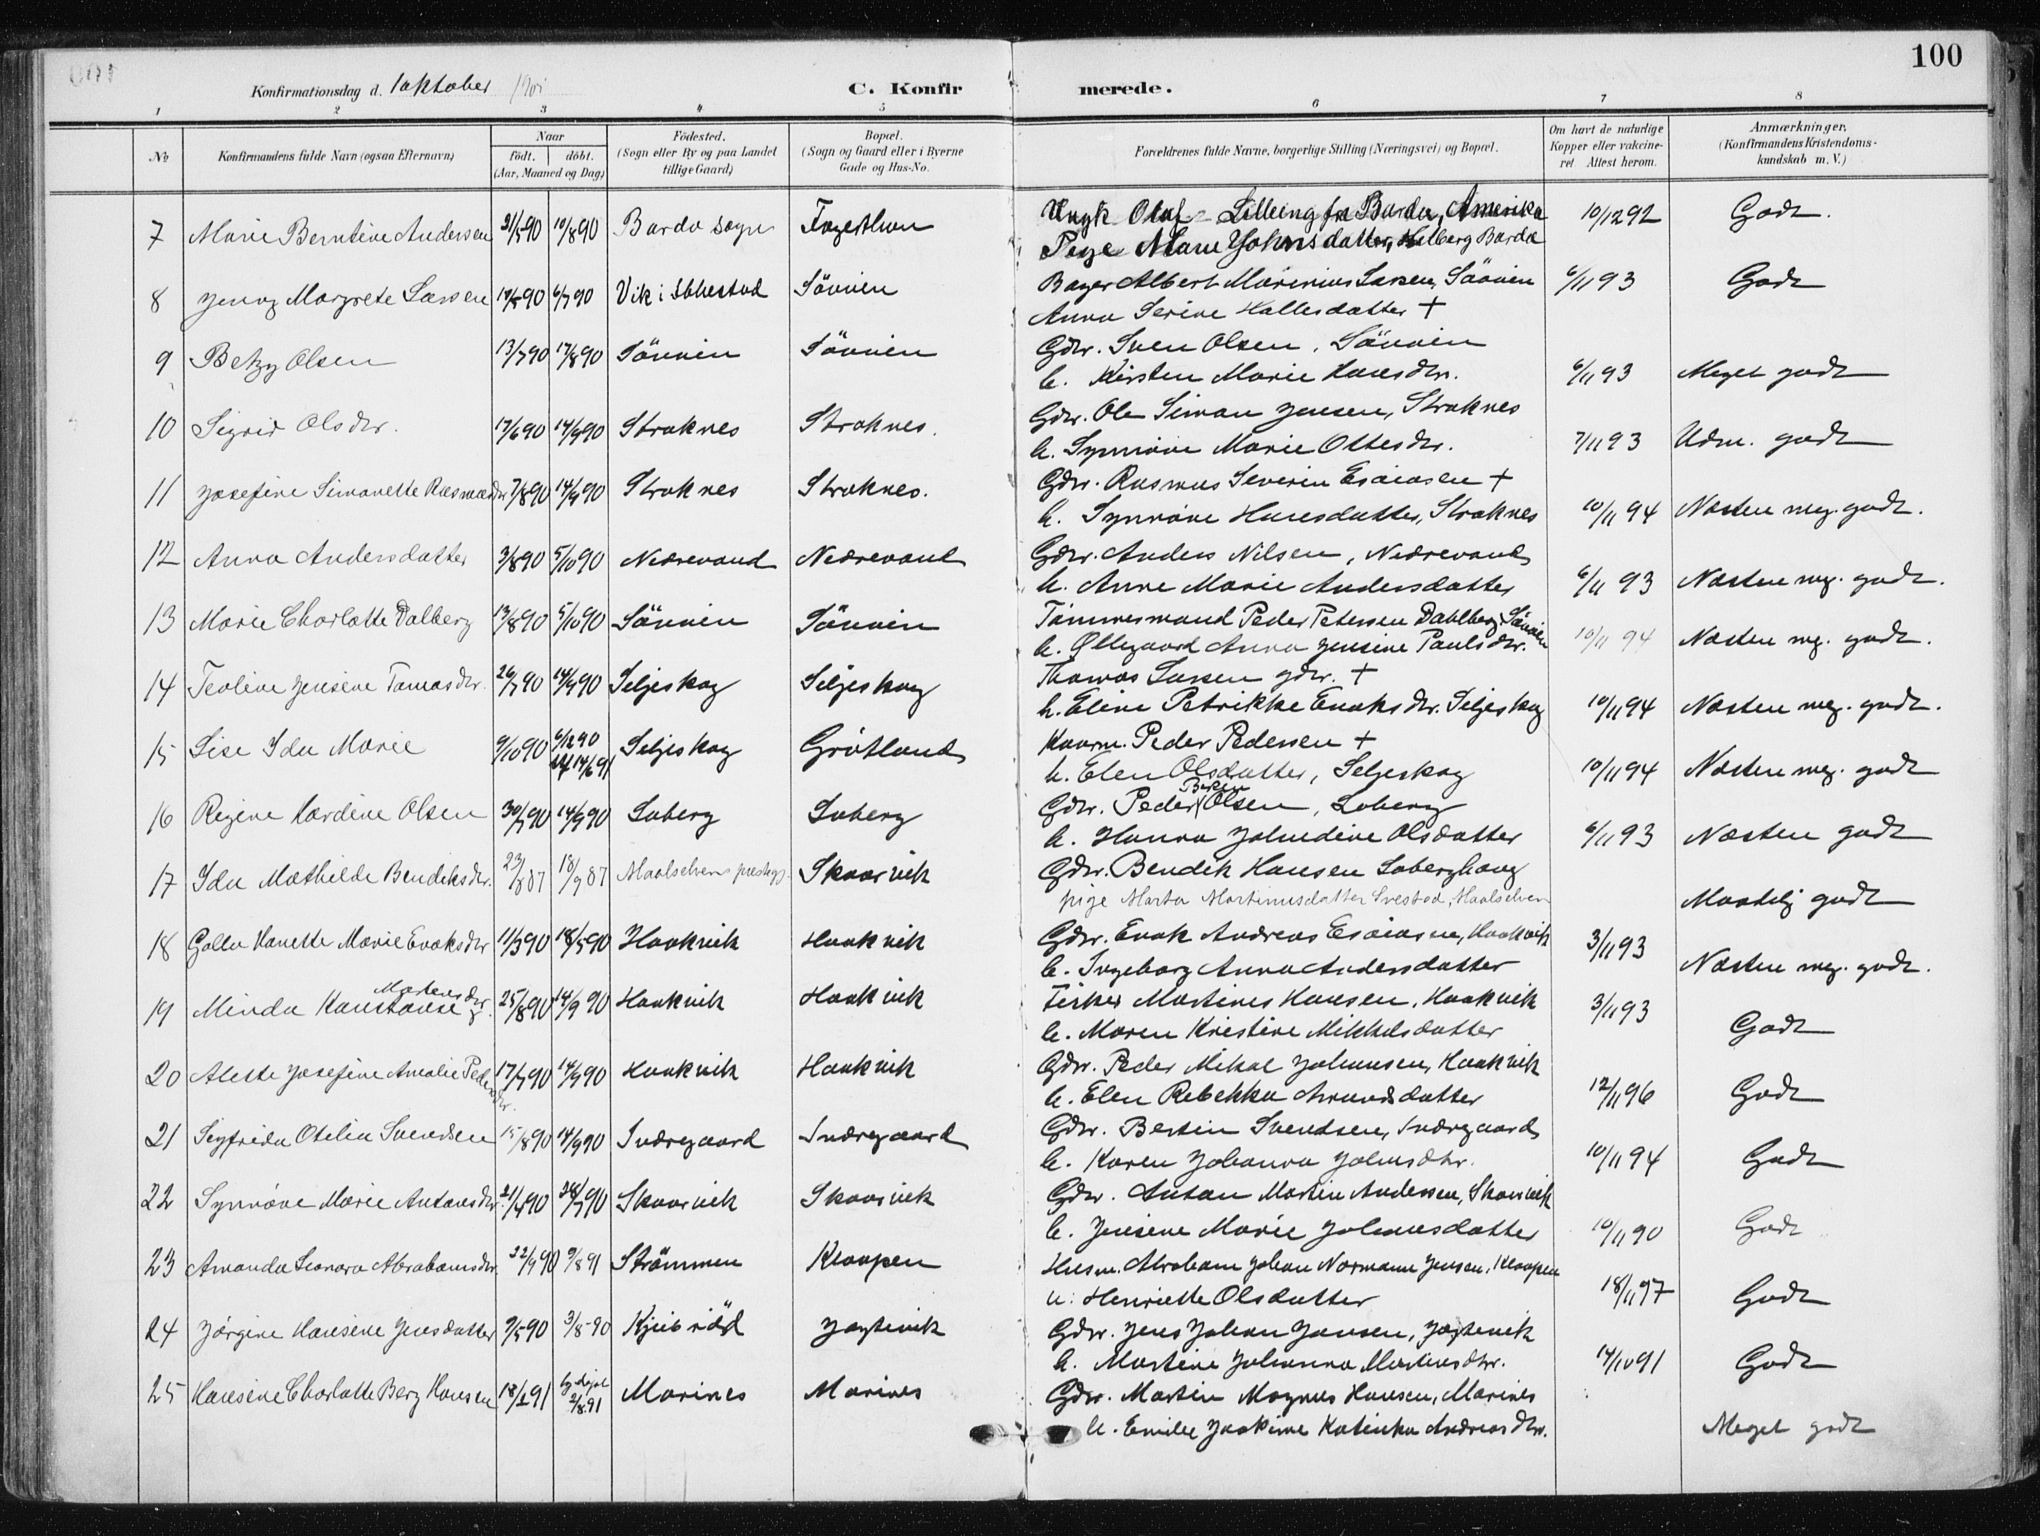 100
Konfirmationsdag d. 1 oktober 1905
C. Konfirmerede.
1 2 3 4 5 6 7 8
№ Konfirmandens fulde Navn (ogsaa Efternavn) Naar født. døbt. (Aar, Maaned og Dag) Fødested. (Sogn eller By og paa Landet tillige Gaard) Bopæl. (Sogn og Gaard eller i Byerne Gade og Hus-No. Forældrenes fulde Navne, borgerlige Stilling (Næringsvei) og Bopæl. Om havt de naturlige Kopper eller vaccineret Attest herom. Anmærkninger, (Konfirmandens Kristendomskundskab m. V.)
7 Marie Berntine Andersen 21/5 90 10/8 90 Bardo sogn Fagerthun Ungk Olaf Lilleeng fra Bardu, Amerika 10/12 92 Godt.
Pige Marie Johnsdatter, Bardo
8 Jenny Margrete Larsen 6/7 90 Vik i Ibbestad Sövvien Albert Marinius Larsen, Sövvien 6/11 93 Godt
Anna Serine Hallesdatter +
9 Betzy Olsen 13/7 90 17/8 90 Sövvien Sövvien Gdbr. Sven Olsen, Sövvien
h. Kirsten Marie Hansdtr. 6/11 93 Meget godt
10 Sigrid Olsdtr. 17/6 90 14/9 90 Straknes Straknes. Gdbr. Ole Simon Jensen, Straknes
h. Synnøve Marie Ottesdtr. 7/11 93 Udm. godt
11 Josefine Simonette Rasmusdtr 7/8 90 14/9 90 Straknes Straknes. Gdbr. Rasmus Severin Esaiasen +
h. Synnøve Hansdatter, Straknes 10/11 94 Næsten meg. godt.
12 Anna Andersdatter 3/8 90 5/10 90 Nedrevand Nedrevand Gdbr. Anders Nilsen, Nedrevand
h. Anne Marie Andersdatter 6/11 93 Næsten meg. godt.
13 Marie Charlotte Dalberg 13/8 90 5/10 90 Sövvien Sövvien Tømmermand Peder Petersen Dahlberg, Sövvien
h. Øllegaard Anna Jensine Paulsdtr. 10/11 94 Næsten meg. godt.
14 Teoline Jensine Tomasdtr. 26/7 90 14/9 90 Seljeskog Seljeskog Thomas Larsen gdbr. +
h. Eline Petrikke Enoksdtr. Seljeskog 10/11 94 Næsten meg. godt.
15 Lise Ida Marie 9/10 90 6/12 90 14/6 91 Seljeskog Gröthland Peder Pedersen +
h. Elen Olsdatter, Seljeskog 10/11 94 Næsten meg. godt
16 Regine Hardine Olsen 30/7 90 14/9 90 Loberg Loberg Gdbr. Peder Olsen, Loberg
h. Hanna Johndine Olsdatter 6/11 93 Næsten godt
17 Ida Mathilde Bendiksdtr. 23/8 87 18/9 87 Maalselvens præstegj. Skaarvik Gdbr. Bendik Hansen Loberghaug
pige Marta Martinusdatter Svestad, Maalselven Maadelig godt
18 Golla Hanette Marie Enoksdtr 11/3 90 18/5 90 Haakvik Haakvik Gdbr. Enok Andreas Esaiasen, Haakvik 3/11 93
h. Ingeborg Anna Andersdatter Næsten meg. godt.
19 Minda Konstanse Martensdtr 25/8 90 14/9 90 Haakvik Haakvik Fisker Martines Hansen, Haakvik 3/11 93
h. Maren Kristine Mikkelsdatter Godt
20 Alette Josefine Amalie Pedersdtr. 17/7 90 14/9 90 Haakvik Haakvik Gdbr. Peder Mikal Johansen, Haakvik
h. Elen Rebekka Arnundsdatter 12/11 96 Godt
21 Segfrida Otelia Svendsen 15/8 90 14/9 90 Indregaard Indregaard Gdbr. Bertin Svendsen, Indregaard
h. Karen Johanna Johnsdtr. 10/11 94 Godt
22 Synnøve Marie Antonsdtr. 21/4 90 28/7 90 Skaarvik Skaarvik Gdbr. Anton Martin Andersen, Skaarvik
h. Jensine Marie Johansdatter 10/11 90 Godt
23 Amanda Leonora Abrahamsdtr. 22/9 90 9/8 91 Strömmen Klaapen Husm. Abraham Johan Normann Jensen, Klaapen
h. Henriette Olsdatter 18/11 97 Godt
24 Jörgine Hansine Jensdatter 9/5 90 3/8 90 Kjeibröd Jagtevik Gdbr. Jens Johan Jansen, Jagtevik
h. Martine Johanna Martinsdtr. 14/10 91 Godt
25 Hansine Charlotte Berg Hansen 18/1 91 2/8 91 Marines Marines Gdbr. Martin Magnus Hansen, Marines
h. Emilie Joakime Katinka Andreasdtr. Meget godt